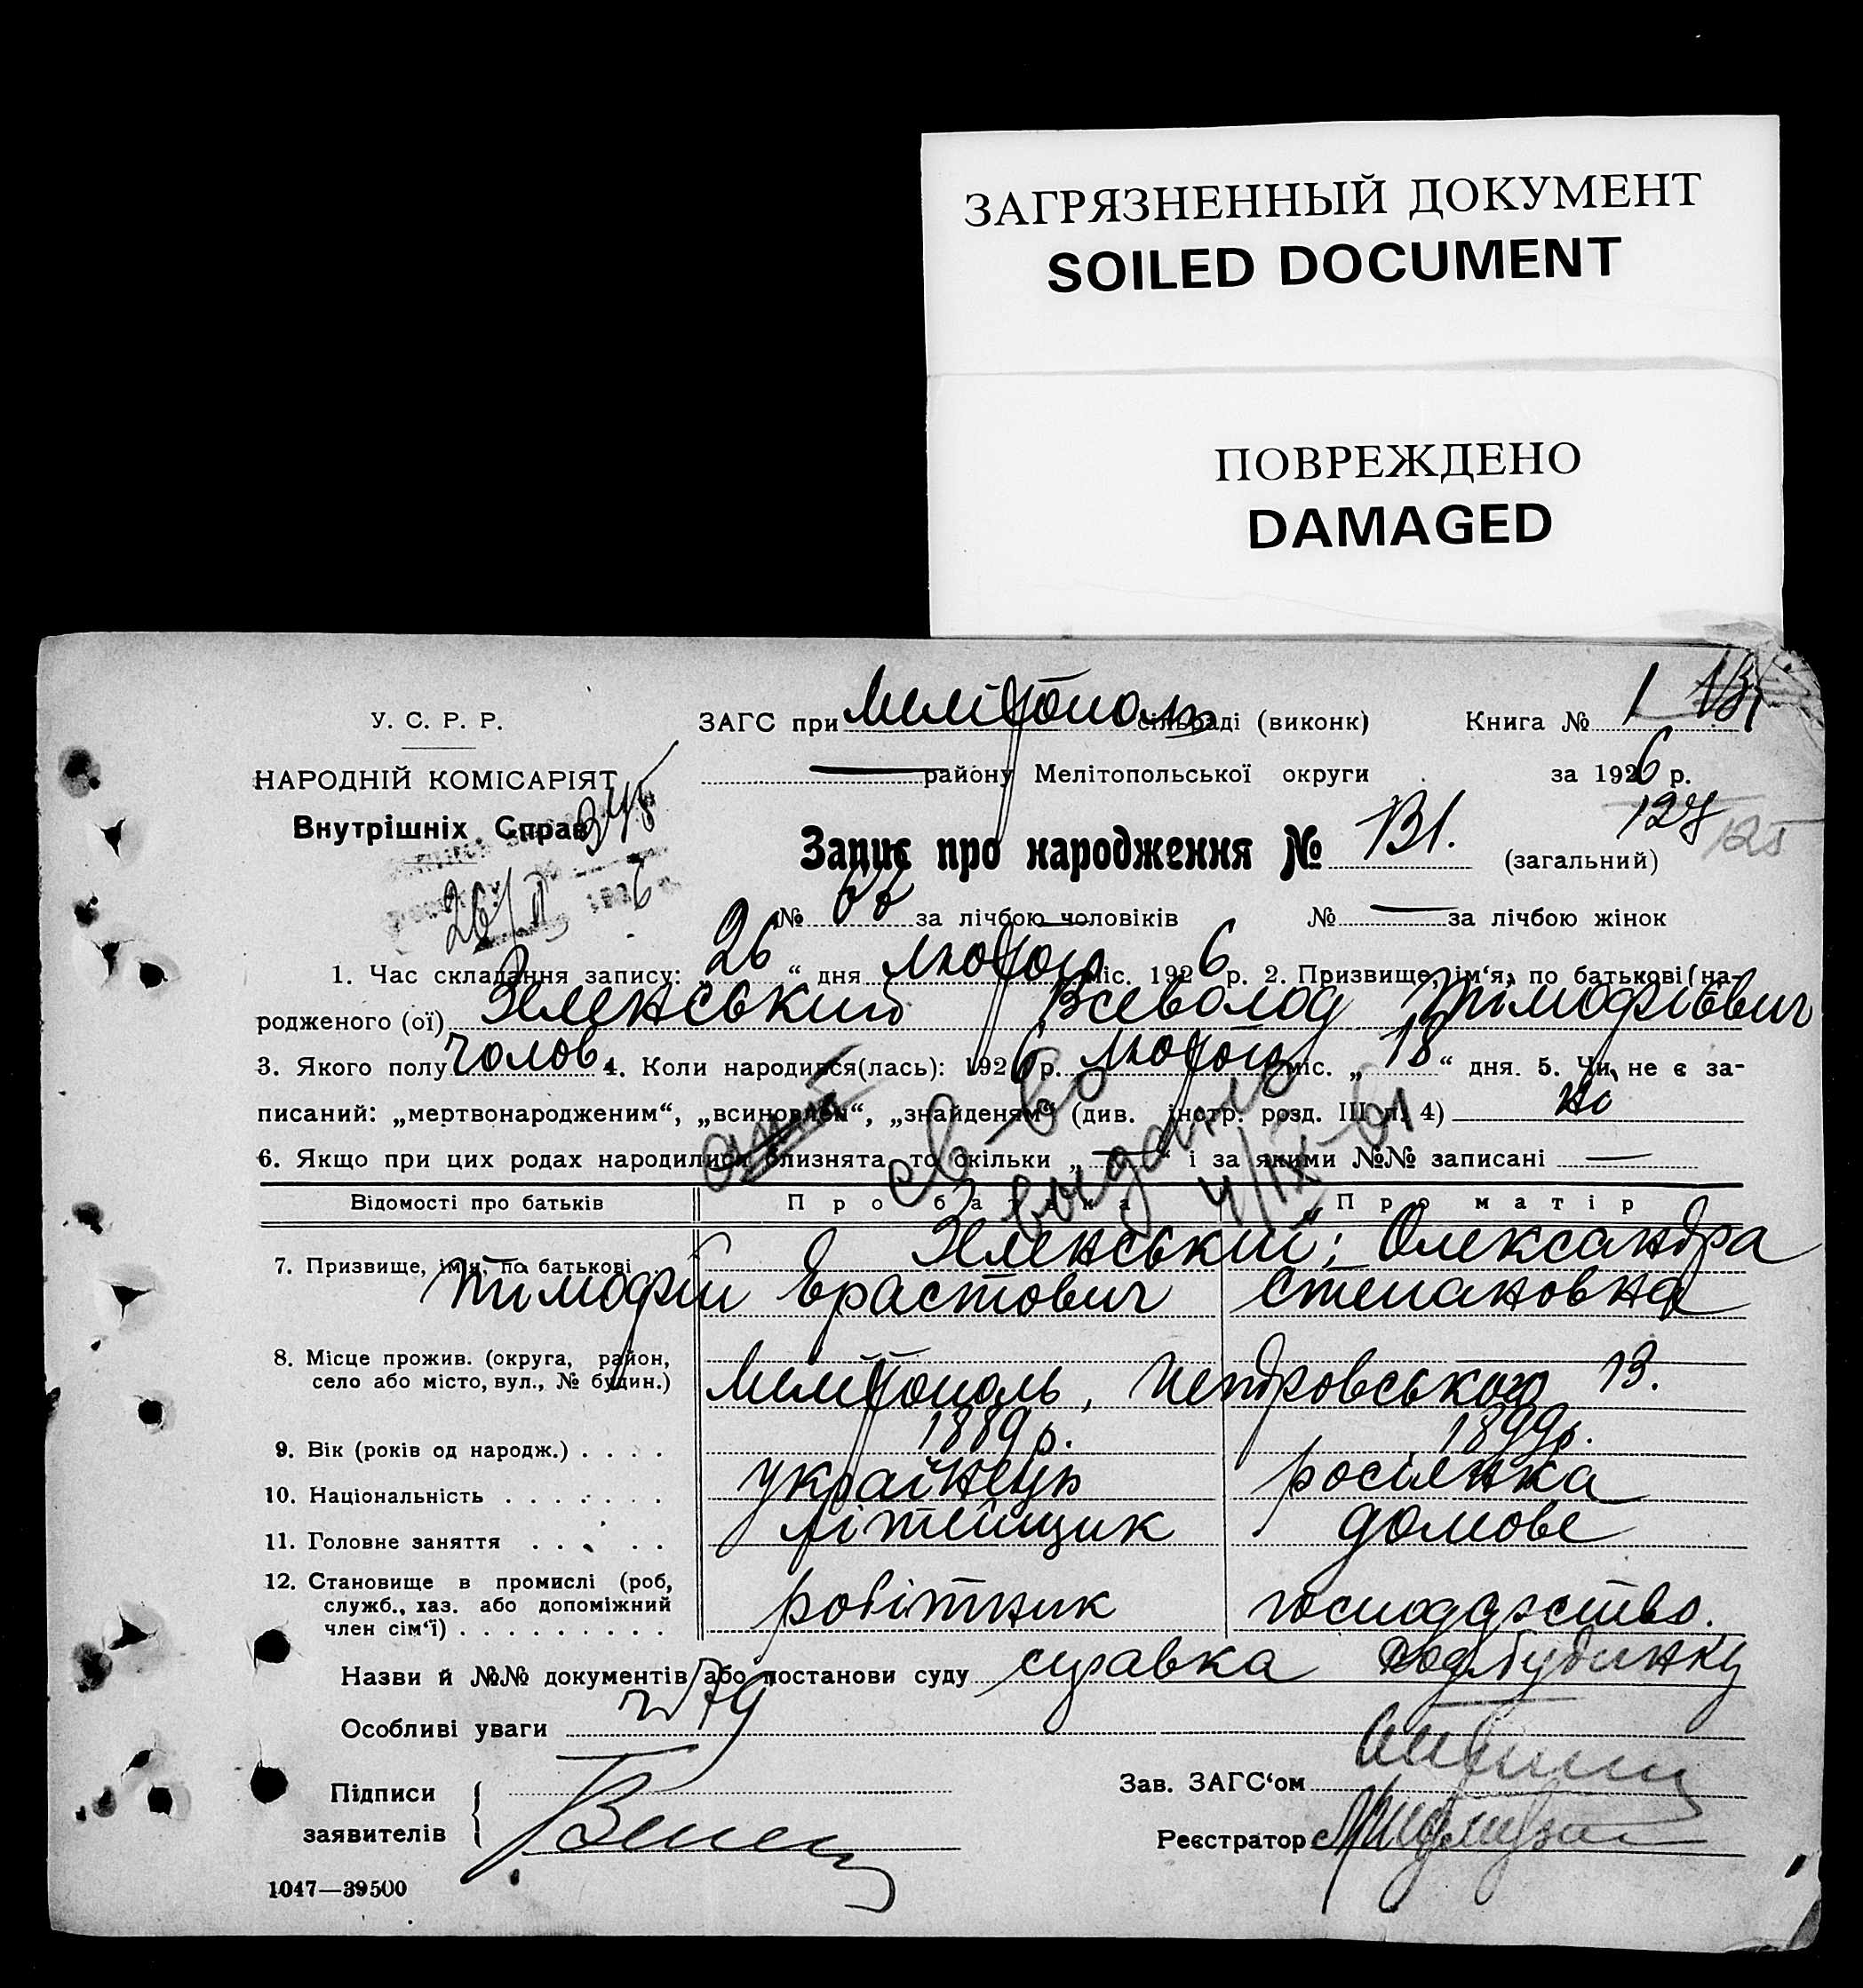 ЗАГРЯЗНЕННЫЙ ДОКУМЕНТ
SOILED DOCUMENT
ПОВРЕЖДЕНО
DAMAGED
У. С. Р. Р.
НАРОДНІЙ КОМІСАРІЯТ
Внутрішніх Справ
ЗАГС при Мелітополь сільраді (виконк) Книга № 1 131
— району Мелітопольської округи за 1926 р.
Запис про народження № 131. (загальний)
127
125
26/II 1926
№ 66 за лічбою чоловіків № — за лічбою жінок
1. Час складання запису: „ 26 “ дня лютого міс. 1926 р. 2. Призвище, ім‘я, по батькові (на-
родженого (ої) Зеленський Всеволод Тімофієвич
3. Якого полу чолов. 4. Коли народився(лась): 1926 р. лютого міс. „ 18 “ дня. 5. Чи не є за-
писаний: „мертвонародженим“, „всиновлен“, „знайденям“ (див. інстр. розд. III п. 4) ні
6. Якщо при цих родах народилися близнята, то скільки „ — “ і за якими №№ записані —
св-во
выдано
4/IX-61
Відомості про батьків Про батька Про матір
7. Призвище, ім‘я, по батькові Зеленський; Олександра
Тимофій Ерастович Степановна
8. Місце прожив. (округа, район,
село або місто, вул., № будин.) Мелітополь, Петровського 13.
9. Вік (років од народж.) . . . . 1889 р. 1899 р.
10. Національність . . . . . . . українець росіянка
11. Головне заняття . . . . . літейщик домове
12. Становище в промислі (роб,
служб., хаз. або допоміжний
член сім‘ї) . . . . . . . . . робітник господарство.
Назви й №№ документів або постанови суду справка род. будинку
Особливі уваги № 79
Підписи
заявителів
Зав. ЗАГС‘ом
Реєстратор
1047—39500